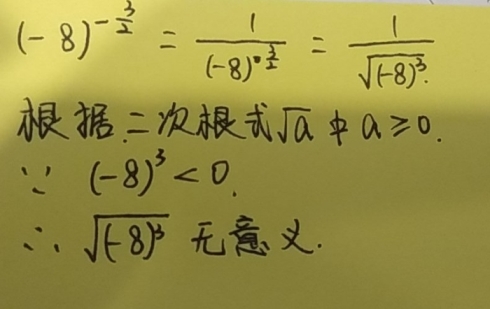 (-8)^{-\frac{3}{2}} = \frac{1}{(-8)^{\frac{3}{2}}} = \frac{1}{\sqrt{(-8)^3}}.
根据二次根式√a中 a≥0.
∵ (-8)³<0.
∴ √(-8)³ 无意义.